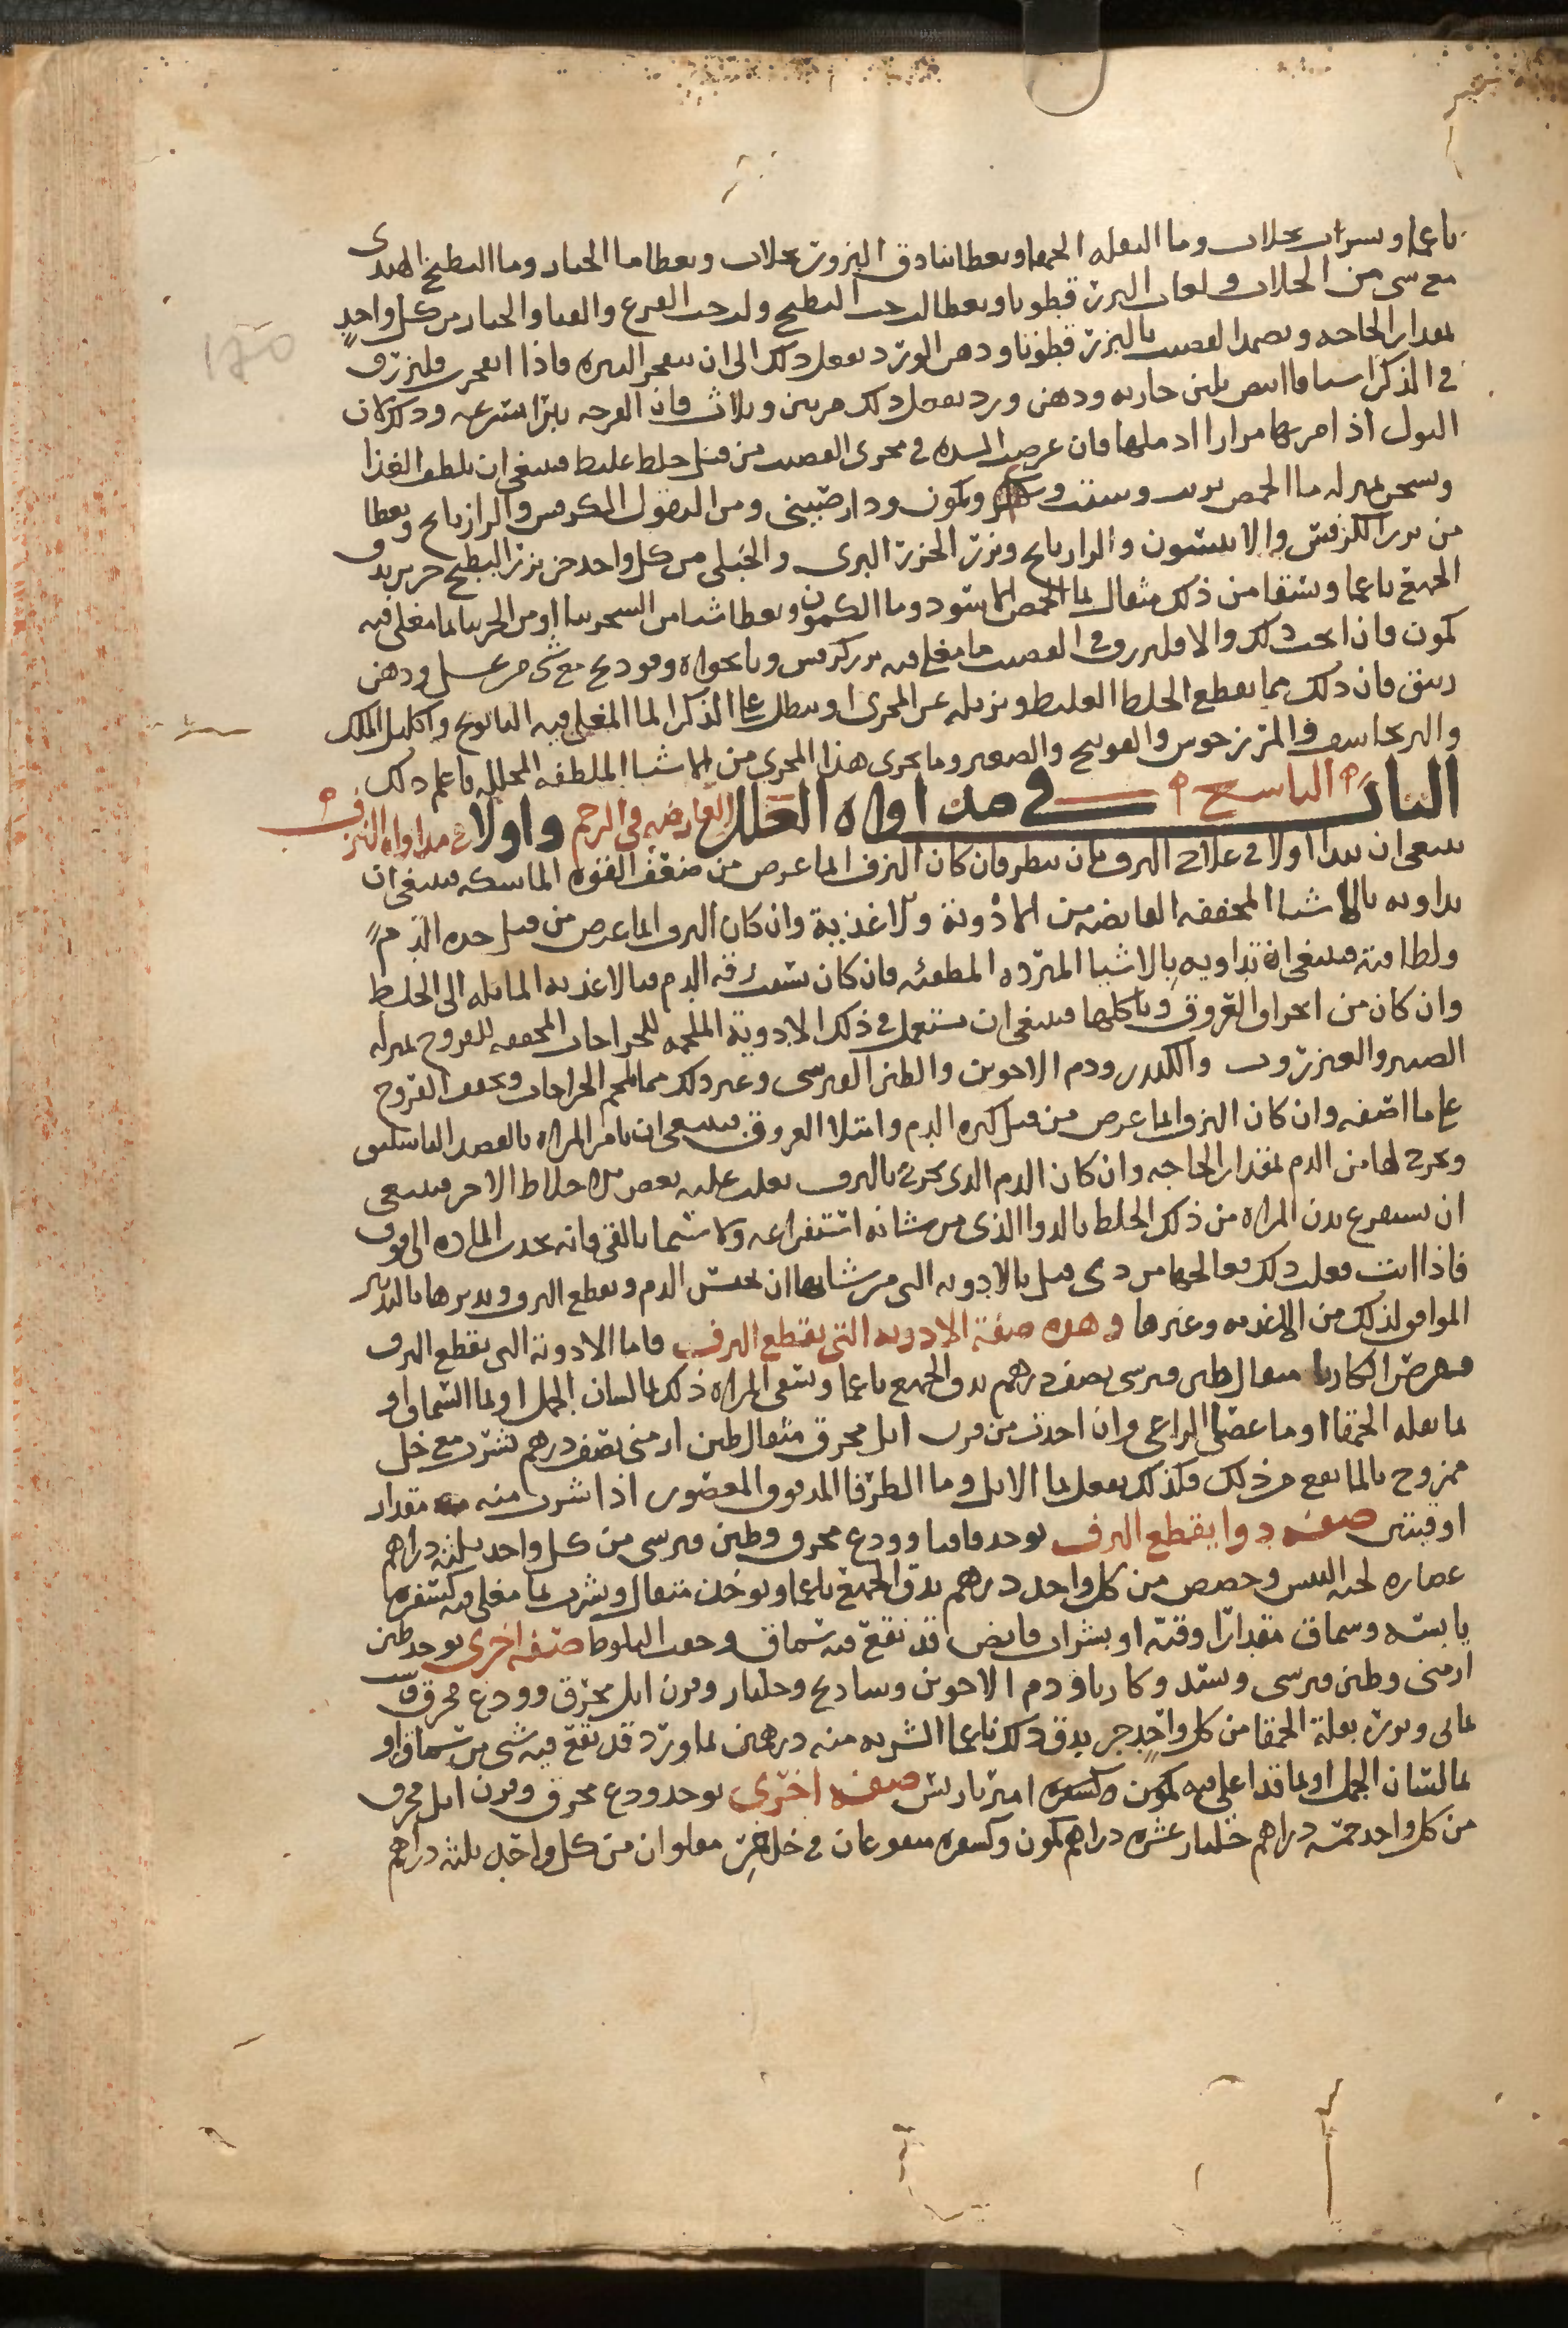 ناعما وشراب بجلاب وما البقله الحمقا ويعطا بنادق البزور بجلاب ويعطا ما الخيار وما البطيخ الهندى
مع شى من الجلاب ولعاب البزر قطونا ويعطا لب حب البطيخ ولب حب القرع والقثا والخيار من كل واحدٍ
بمقدار الحاجه ويضمد القضيب بالبزر قطونا ودهن الورد يفعل ذلك الى ان تنفجر البثره فاذا انفجرت فليزرق
فى الذكر اشياف ابيض بلبن جاريه ودهن ورد يفعل ذلك مرتين وثلاث فان القرحه تبرا بسرعه وذلك لان
البول اذا مر بها مرارا ادملها فان عرضت السده فى مجرى القضيب من قبل خلط غليظ فينبغى ان يلطف الغذا
ويسخن بمنزله ما الحمص بزيت وشبت وكمون ودارصينى ومن البقول الكرفس والرازيانج ويعطا
من بزر الكرفس والانيسون والرازيانج وبزر الجزر البرى والجبلى من كل واحد جز بزر البطيخ جزين يدق
الجميع ناعما ويسقا من ذلك مثقال بما الحمص الاسود وما الكمون ويعطا شيا من السجزنيا او من الجرنيا بما مغلى فيه
كمون فان انجب ذلك والا فليزرق فى القضيب ما مغلى فيه بزر كرفس ونانخواه وفودنج مع شى من عسل ودهن
زنبق فان ذلك مما يقطع الخلط الغليظ ويزيله عن المجرى او ينطل على الذكر الما المغلى فيه البابونج واكليل الملك
والبرنجاسف والمرزنجوس والفودنج والصعتر وما يجرى هذا المجرى من الاشيا الملطفه المحلله فاعلم ذلك
الباب التاسع فى مداواه العلل العارضه فى الرحم واولا فى مداواه النزف
ينبغى ان يبدا اولا فى علاج النزف بان ينظر فان كان النزف انما عرض من ضعف القوه الماسكه فينبغى ان
يداويه بالاشيا المجففه القابضه من الادوية والاغذية وان كان النزف انما عرض من قبل حده الدم
ولطافته فينبغى ان تداويه بالاشيا المبرده المطفئه فان كان بسبب رقه الدم فبالاغذيه المايله الى الغلظ
وان كان من انخراق العروق وتاكلها فينبغى ان تستعمل فى ذلك الادوية الملحمه للجراحات المجففه للقروح بمنزله
الصبر والعنزروت والكندر ودم الاخوين والطين القبرسى وغير ذلك مما يلحم الجراحات ويجفف القروح
على ما اصفه وان كان النزف انما عرض من قبل كثره الدم وامتلا العروق فينبغى ان تامر المراه بالفصد الباسليق
ويخرج لها من الدم بمقدار الحاجه وان كان الدم الذى يخرج بالنزف يغلب عليه بعض الاخلاط الاخر فينبغى
ان يستفرغ بدن المراه من ذلك الخلط بالدوا الذى من شانه استفراغه ولا سيما بالقى فانه يجذب الماده الى فوق
فاذا انت فعلت ذلك فعالجها من ذى قبل بالادويه التى من شانها ان تحبس الدم وتقطع النزف وتدبرها بالتدبير
الموافق لذلك من الاغذيه وغيرها وهذه صفة الادويه التى تقطع النزف فاما الادوية التى تقطع النزف
فقرص الكاربا مثقال طين قبرسى نصف درهم يدق الجميع ناعما وتسقى المراه ذلك بما لسان الحمل او بما السماق او
بما بقله الحمقا او ما عصى الراعى وان اخذت من قرن ايل محرق مثقال طين ارمنى نصف درهم تشرب مع خل
ممزوج بالما نفع من ذلك وكذلك يفعل بما الاثل وما الطرفا المدقوق المعصور اذا شرب منه مقدار
اوقيتين صفه دوا يقطع النزف يوخذ قاقيا وودع محرق وطين قبرسى من كل واحد ثلثه دراهم
عصاره لحيه التيس وحضض من كل واحد درهم يدق الجميع ناعما ويوخذ مثقال ويشرب بما مغلى فيه كسفره
يابسه وسماق مقدار اوقيه او بشراب قابض قد نقع فيه سماق وجفت البلوط صفه اخرى يوخذ طين
ارمنى وطين قبرسى وبسد وكاربا ودم الاخوين وسادنج وجلنار وقرن ايل محرق وودع محرق وشب
يمانى وبزر بقلة الحمقا من كل واحدٍ جز يدق ذلك ناعما الشربه منه درهمين بما ورد قد نقع فيه شى من سماق او
بما لسان الحمل او بما قد اغلى فيه كمون وكسفره امير باريس صفه اخرى يوخذ ودع محرق وقرن ايل محرق
من كل واحد خمسه دراهم جلنار عشره دراهم كمون وكسفره منقوعان فى خل خمر مقلوان من كل واحد ثلثه دراهم